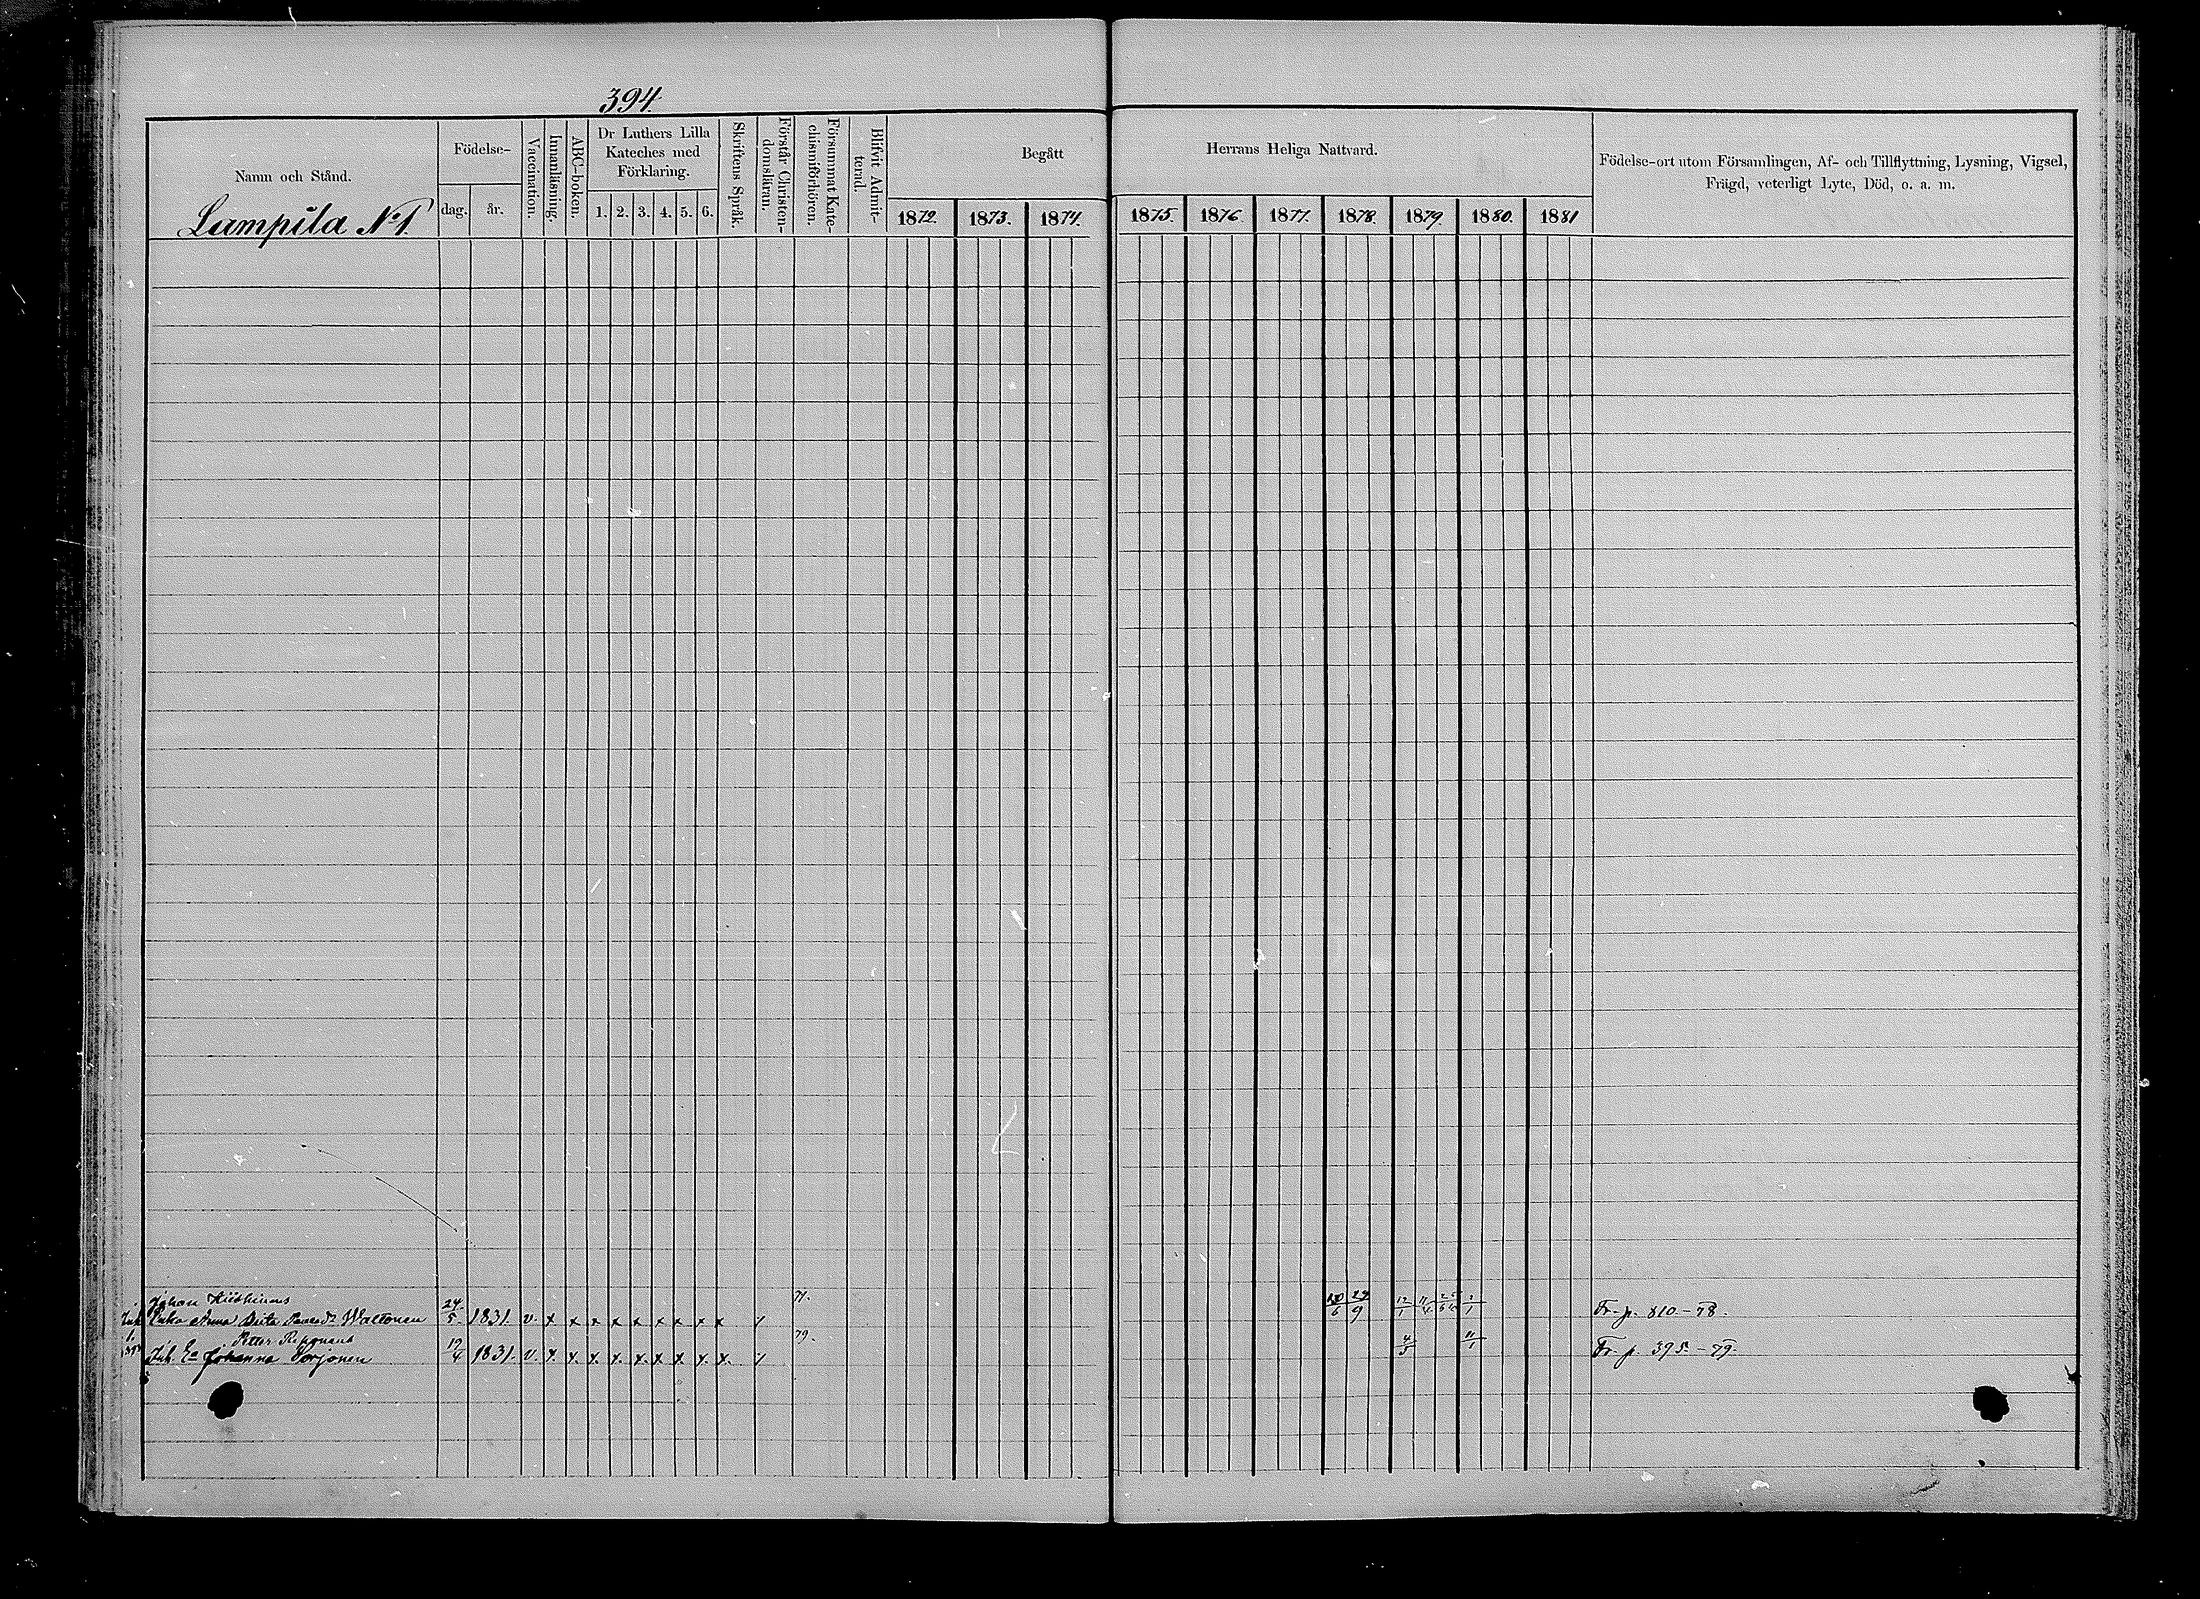 394.
Namn och Stånd.
Lampila No 1.
Födelse-
dag. år.
Vaccination.
Innanläsning.
ABC-boken.
Dr Luthers Lilla
Kateches med
Förklaring.
1. 2. 3. 4. 5. 6.
Skriftens Språk.
Förstår Christen-
domsläran.
Försummat Kate-
chismiförhören.
Blifvit Admit-
terad.
Begått
1872. 1873. 1874.
Herrans Heliga Nattvard.
1875. 1876. 1877. 1878. 1879. 1880. 1881
Födelse-ort utom Församlingen, Af- och Tillflyttning, Lysning, Vigsel,
Frägd, veterligt Lyte, Död, o. a. m.
Johan
Enka Anna Beita Waltonen 24/5 1831. v. x x x x x x x x x Fr. p. 810.-78.
Petter
Enka Johanna Sorjonen 1831. v. x. x. x. x. x. x x. x. x. 79. 4/3 11/1 Fr. p. 395.-79.